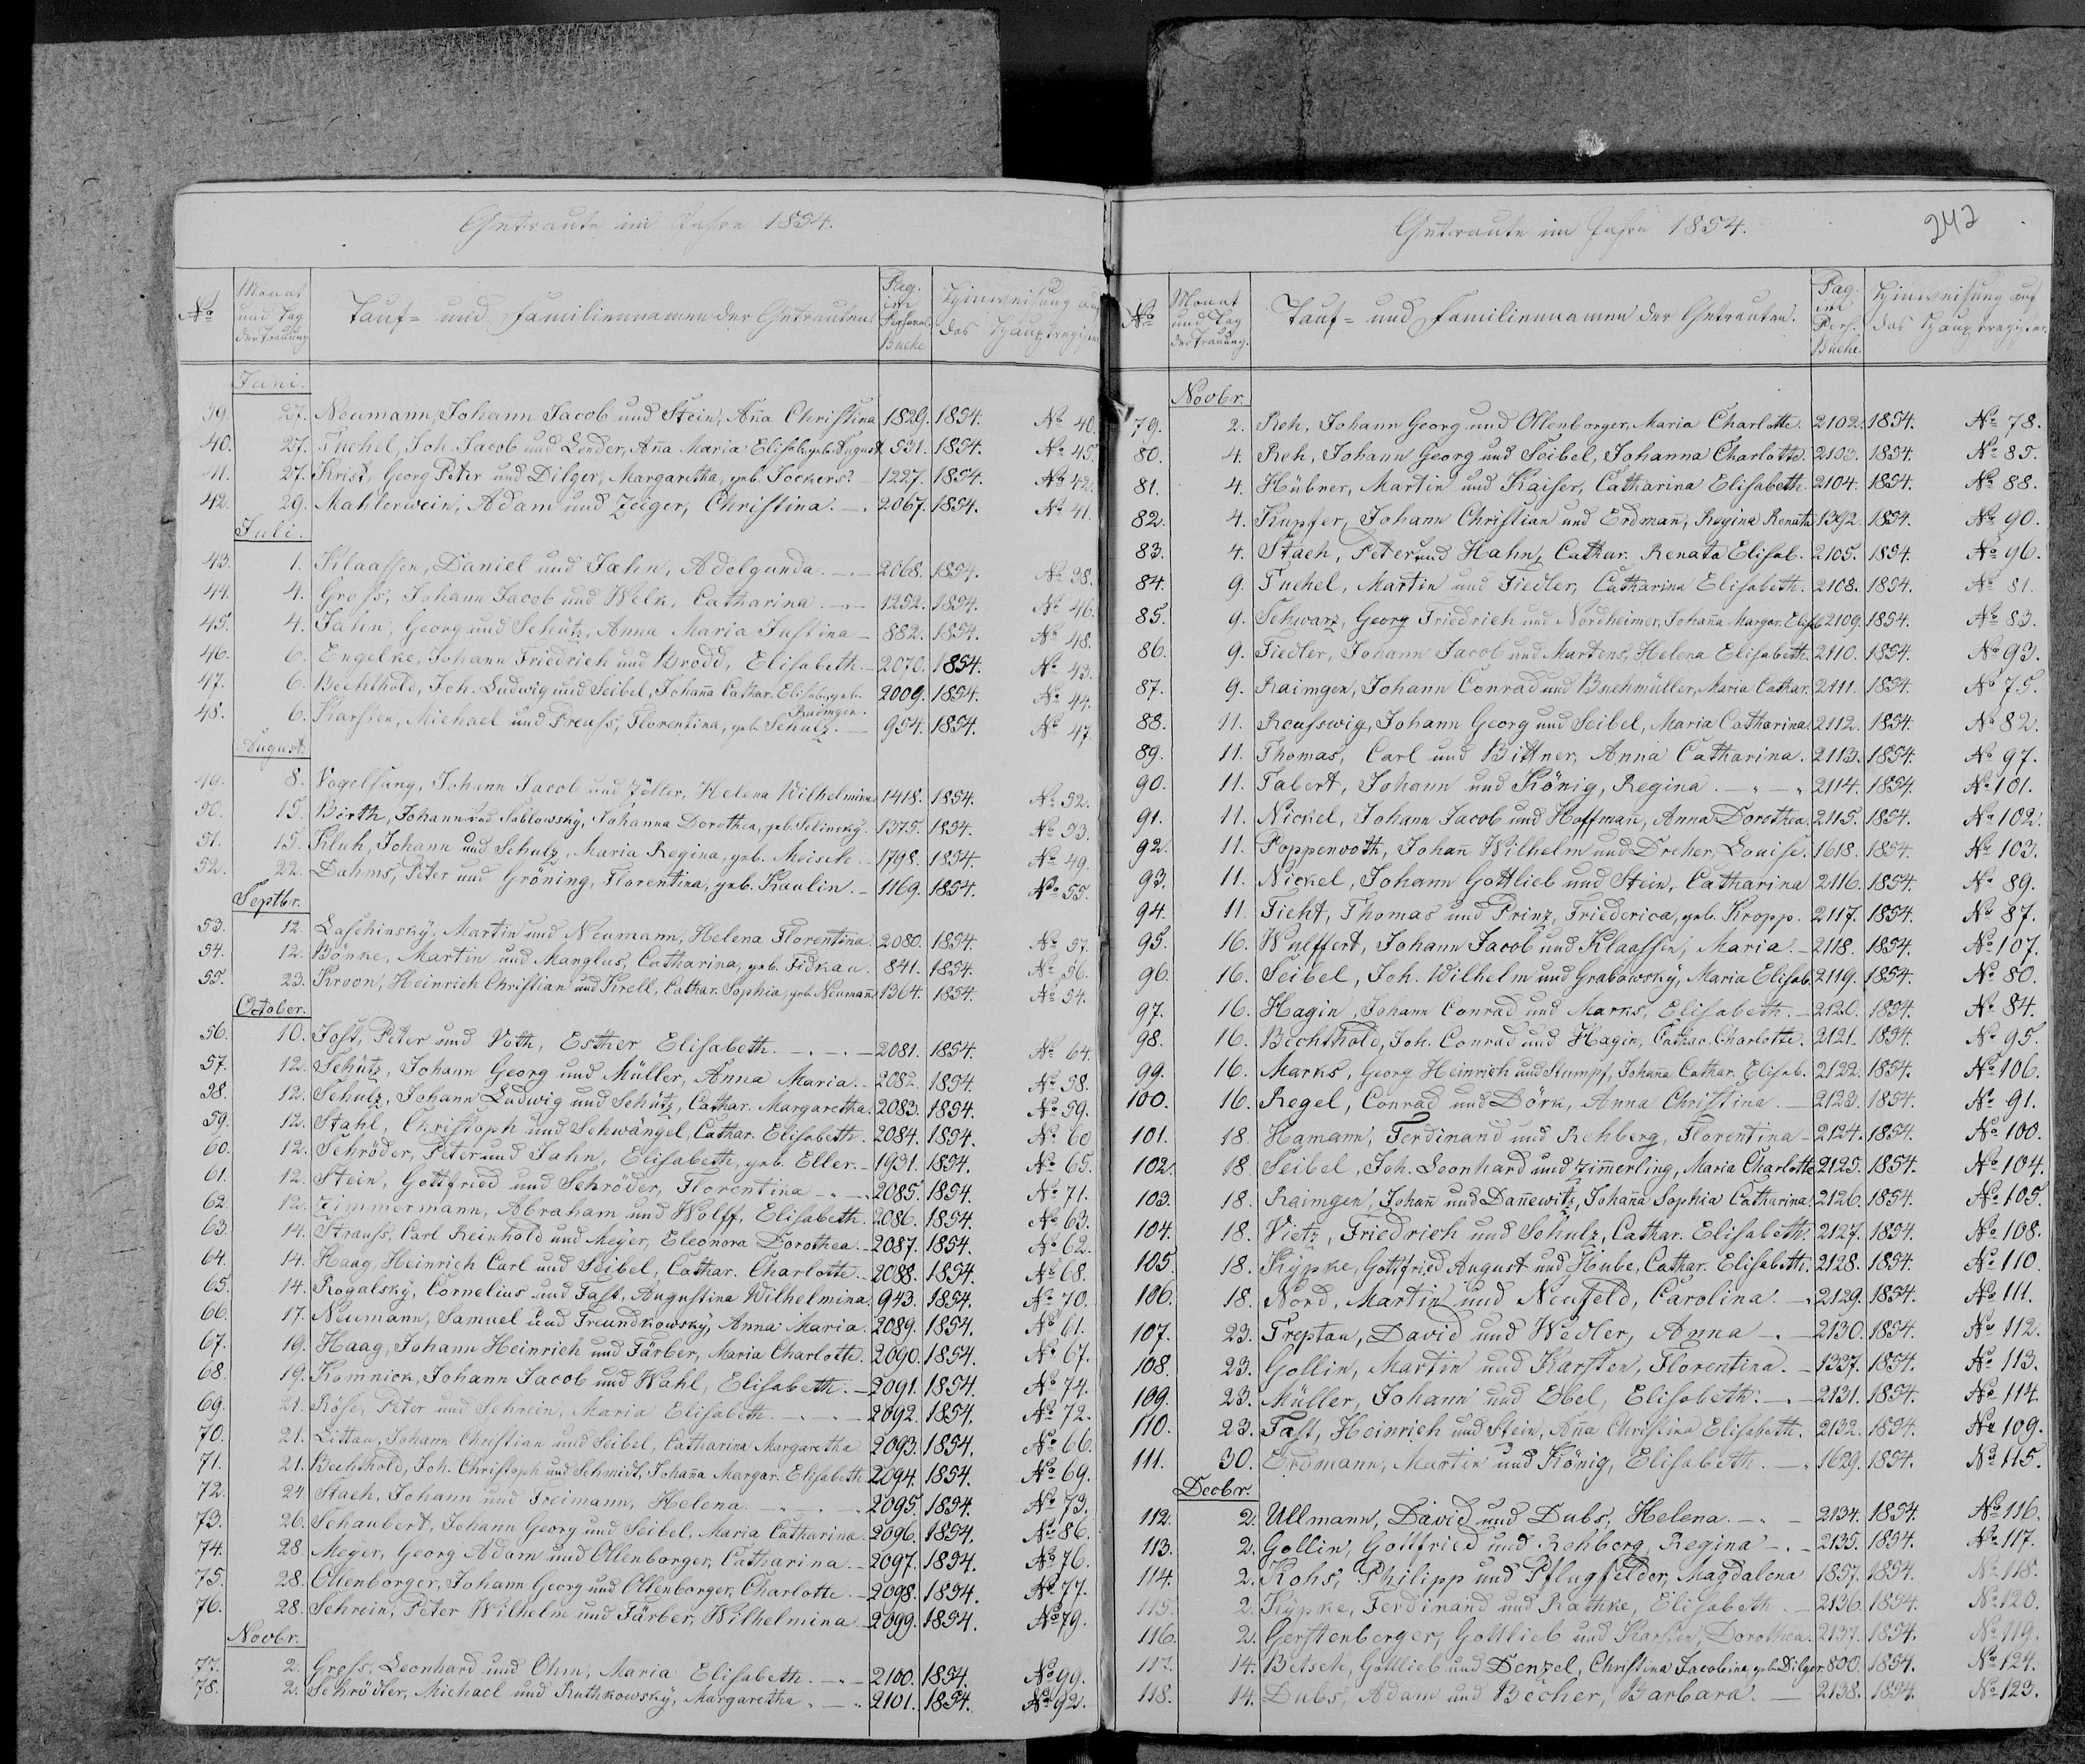 Getraute im Jahre 1854.
No
Monat und Tag der Trauung
Tauf- und Familiennamen der Getrauten.
Pag. im Personal-Buche
Hinweisung auf das Hauptregister
Juni.
39. 27. Neumann, Johann Jacob und Stein, Aña Christina 1829. 1854. No 40.
40. 27. Tuchel, Joh. Jacob und Lender, Aña Maria Elisab. geb. August 531. 1854. No 45.
41. 27. Krist, Georg Peter und Dilger, Margaretha, geb. Jockers. – 1227. 1854. No 42.
42. 29. Mahlerwein, Adam und Zeiger, Christina. –. 2067. 1854. No 41.
Juli.
43. 1. Klaassen, Daniel und Jahn, Adelgunda. –.– 2068. 1854. No 38.
44. 4. Gross, Johann Jacob und Welk, Catharina. –.– 1252. 1854. No 46.
45. 4. Jahn, Georg und Schütz, Anna Maria Justina – 882. 1854. No 48.
46. 6. Engelke, Johann Friedrich und Brodd, Elisabeth. – 2070. 1854. No 43.
47. 6. Bechthold, Joh. Ludwig und Seibel, Johaña Cathar. Elisab., geb. Raimgen. 2009. 1854. No 44.
48. 6. Karsten, Michael und Preuss, Florentina, geb. Schulz. – 954. 1854. No 47.
August.
49. 8. Vogelsang, Johann Jacob und Zöller, Helena Wilhelmina 1418. 1854. No 52.
50. 15. Birth, Johann und Sablowsky, Johanna Dorothea, geb. Selinsky. 1375. 1854. No 53.
51. 15. Kluh, Johann und Schulz, Maria Regina, geb. Meisch – 1798. 1854. No 49.
52. 22. Dahms, Peter und Gröning, Florentina, geb. Kaulin. – 1169. 1854. No 55.
Septbr.
53. 12. Laschinsky, Martin und Neumann, Helena Florentina. 2080. 1854. No 57.
54. 12. Bönke, Martin und Manglus, Catharina, geb. Fidkau. 841. 1854. No 56.
55. 23. Kroon, Heinrich Christian und Krell, Cathar. Sophia, geb. Neumañ 1364. 1854. No 54.
October.
56. 10. Jost, Peter und Voth, Esther Elisabeth. –.–.– 2081. 1854. No 64.
57. 12. Schütz, Johann Georg und Müller, Anna Maria. – 2082. 1854. No 58.
58. 12. Schulz, Johann Ludwig und Schütz, Cathar. Margaretha. 2083. 1854. No 59.
59. 12. Stahl, Christoph und Schwängel, Cathar. Elisabeth. 2084. 1854. No 60
60. 12. Schröder, Peter und Jahn, Elisabeth, geb. Eller. – 1931. 1854. No 65.
61. 12. Stein, Gottfried und Schröder, Florentina –.–. 2085. 1854. No 71.
62. 12. Zimmermann, Abraham und Wolff, Elisabeth. 2086. 1854. No 63.
63. 14. Strauss, Carl Reinhold und Meyer, Eleonora Dorothea. – 2087. 1854. No 62.
64. 14. Haag, Heinrich Carl und Seibel, Cathar. Charlotte. – 2088. 1854. No 68.
65. 14. Rogalsky, Cornelius und Fast, Augustina Wilhelmina. 943. 1854. No 70.
66. 17. Neumann, Samuel und Freundkowsky, Anna Maria. 2089. 1854. No 61.
67. 19. Haag, Johann Heinrich und Färber, Maria Charlotte. 2090. 1854. No 67.
68. 19. Komnick, Johann Jacob und Wahl, Elisabeth. – 2091. 1854. No 74.
69. 21. Röse, Peter und Schrein, Maria Elisabeth. –.–.– 2092. 1854. No 72.
70. 21. Littau, Johann Christian und Seibel, Catharina Margaretha 2093. 1854. No 66.
71. 21. Bechthold, Joh. Christoph und Schmidt, Johaña Margar. Elisabeth 2094. 1854. No 69.
72. 24. Stach, Johann und Freimann, Helena. –.–.– 2095. 1854. No 73.
73. 26. Schaubert, Johann Georg und Seibel, Maria Catharina. 2096. 1854. No 86.
74. 28. Meyer, Georg Adam und Ollenborger, Catharina. – 2097. 1854. No 76.
75. 28. Ollenborger, Johann Georg und Ollenborger, Charlotte. – 2098. 1854. No 77.
76. 28. Schrein, Peter Wilhelm und Färber, Wilhelmina – 2099. 1854. No 79.
Novbr.
77. 2. Gross, Leonhard und Ohm, Maria Elisabeth. –.– 2100. 1854. No 99.
78. 2. Schrödter, Michael und Ruthkowsky, Margaretha. –. 2101. 1854. No 92.
Getraute im Jahre 1854.
242
No
Monat und Tag der Trauung.
Tauf- und Familiennamen der Getrauten.
Pag. im Pers. Buche.
Hinweisung auf das Hauptregister.
Novbr.
79. 2. Reh, Johann Georg und Ollenborger, Maria Charlotte. 2102. 1854. No 78.
80. 4. Reh, Johann Georg und Seibel, Johanna Charlotte. 2103. 1854. No 85.
81. 4. Hübner, Martin und Kaiser, Catharina Elisabeth. 2104. 1854. No 88.
82. 4. Kupfer, Johann Christian und Erdman, Regina Renata 1392. 1854. No 90.
83. 4. Stach, Peter und Hahn, Cathar. Renata Elisab. 2105. 1854. No 96.
84. 9. Tuchel, Martin und Fiedler, Catharina Elisabeth. 2108. 1854. No 81.
85. 9. Schwarz, Georg Friedrich und Nordheimer, Johaña Margar. Elisab. 2109. 1854. No 83.
86. 9. Fiedler, Johann Jacob und Martens, Helena Elisabeth. 2110. 1854. No 93.
87. 9. Raimgen, Johann Conrad und Buchmüller, Maria Cathar. 2111. 1854. No 75.
88. 11. Reusswig, Johann Georg und Seibel, Maria Catharina 2112. 1854. No 82.
89. 11. Thomas, Carl und Bittner, Anna Catharina. 2113. 1854. No 97.
90. 11. Tabert, Johann und König, Regina. –.–. 2114. 1854. No 101.
91. 11. Nickel, Johann Jacob und Hoffmañ, Anna Dorothea. 2115. 1854. No 102.
92. 11. Poppenroth, Johañ Wilhelm und Dreher, Louise. 1618. 1854. No 103.
93. 11. Nickel, Johann Gottlieb und Stein, Catharina 2116. 1854. No 89.
94. 11. Ficht, Thomas und Prinz, Friederica, geb. Kropp. 2117. 1854. No 87.
95. 16. Wulffert, Johann Jacob und Klaassen, Maria. – 2118. 1854. No 107.
96. 16. Seibel, Joh. Wilhelm und Grabowsky, Maria Elisab. 2119. 1854. No 80.
97. 16. Hagin, Johann Conrad und Marks, Elisabeth. – 2120. 1854. No 84.
98. 16. Bechthold, Joh. Conrad und Hagin, Cathar. Charlotte. 2121. 1854. No 95.
99. 16. Marks, Georg Heinrich und Stumpf, Johaña Cathar. Elisab. 2122. 1854. No 106.
100. 16. Regel, Conrad und Dörk, Anna Christina. – 2123. 1854. No 91.
101. 18. Hamann, Ferdinand und Rehberg, Florentina – 2124. 1854. No 100.
102. 18. Seibel, Joh. Leonhard und Zim̃erling, Maria Charlotte 2125. 1854. No 104.
103. 18. Raimgen, Johañ und Dañewitz, Johaña Sophia Catharina. 2126. 1854. No 105.
104. 18. Vietz, Friedrich und Schulz, Cathar. Elisabeth. 2127. 1854. No 108.
105. 18. Kypke, Gottfried August und Hube, Cathar. Elisabeth. 2128. 1854. No 110.
106. 18. Nord, Martin und Neufeld, Carolina. –. 2129. 1854. No 111.
107. 23. Treptau, David und Wedler, Anna –.– 2130. 1854. No 112.
108. 23. Gollin, Martin und Karsten, Florentina. – 1337. 1854. No 113.
109. 23. Müller, Johann und Ebel, Elisabeth. –.– 2131. 1854. No 114.
110. 23. Fast, Heinrich und Stein, Aña Christina Elisabeth. 2132. 1854. No 109.
111. 30. Erdmann, Martin und König, Elisabeth. –. 1629. 1854. No 115.
Decbr.
112. 2. Ullmann, David und Dubs, Helena. –.– 2134. 1854. No 116.
113. 2. Gollin, Gottfried und Rehberg, Regina –.– 2135. 1854. No 117.
114. 2. Kohs, Philipp und Pflugfelder, Magdalena 1857. 1854. No 118.
115. 2. Kypke, Ferdinand und Rathke, Elisabeth. – 2136. 1854. No 120.
116. 2. Gerstenberger, Gottlieb und Karsten, Dorothea. 2137. 1854. No 119.
117. 14. Betsch, Gottlieb und Denzel, Christina Jacobina, geb. Dilger 800. 1854. No 124.
118. 14. Dubs, Adam und Becher, Barbara – 2138. 1854. No 123.